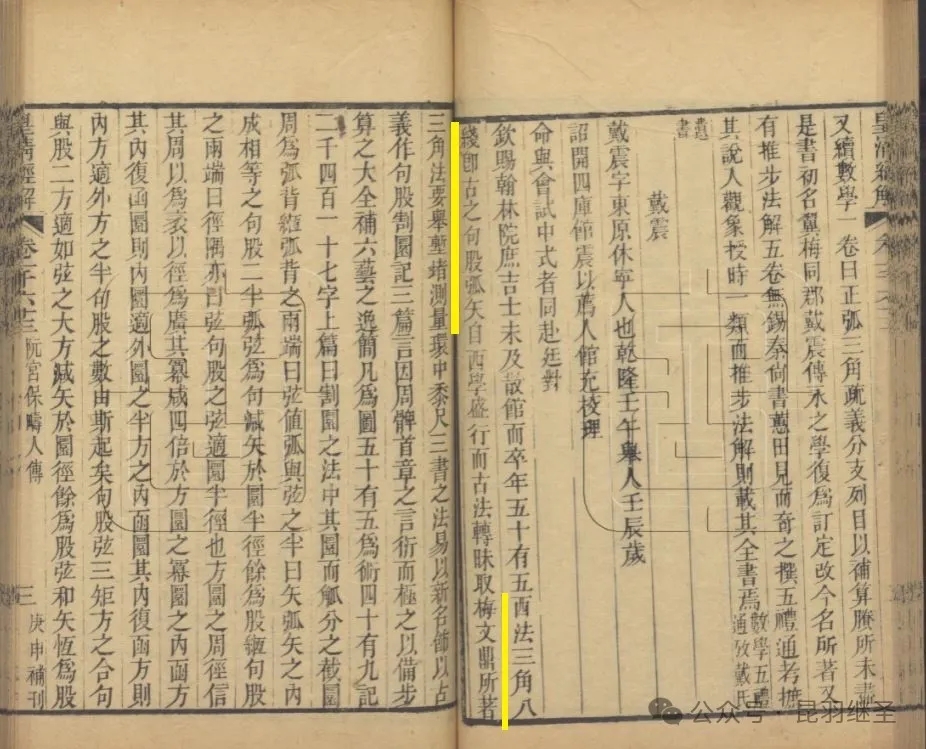 皇清經解
又續數學一卷曰正弧三角疏義分支列目以補算賸所未盡
是書初名翼梅同郡戴震傳永之學復為訂定改今名所著又
有推步法解五卷無錫秦尚書蕙田見而奇之撰五禮通考摭
其說入觀象授時一類而推步法解則載其全書焉數學五禮通攷戴氏
遺書
戴震
戴震字東原休寧人也乾隆壬午舉人壬辰歲
詔開四庫館震以薦入館充校理
命與會試中式者同赴廷對
欽賜翰林院庶吉士未及散館而卒年五十有五西法三角八
綫即古之句股弧矢自西學盛行而古法轉昧取梅文鼎所著
三角法要舉塹堵測量環中黍尺三書之法易以新名飾以古
義作句股割圜記三篇言因周髀首章之言衍而極之以備步
算之大全補六藝之逸簡凡為圖五十有五為術四十有九記
二千四百一十七字上篇曰割圜之法中其圜而觚分之截圜
周為弧背縆弧背之兩端曰弦值弧與弦之半曰矢弧矢之內
成相等之句股二半弧弦為句減矢於圜半徑餘為股縆句股
之兩端曰徑隅亦曰弦句股之弦適圜半徑也方圜之周徑信
其周以為袤以徑為廣其冪咸四倍於方圜之冪圜之內函方
其內復函圜則內圜適外圜之半方之內函圜其內復函方則
內方適外方之半句股之數由斯起矣句股弦三矩方之合句
與股二方適如弦之大方減矢於圜徑餘為股弦和矢恆為股
皇清經解 阮宮保疇人傳 三 庚申補刊
公众号·昆羽继圣